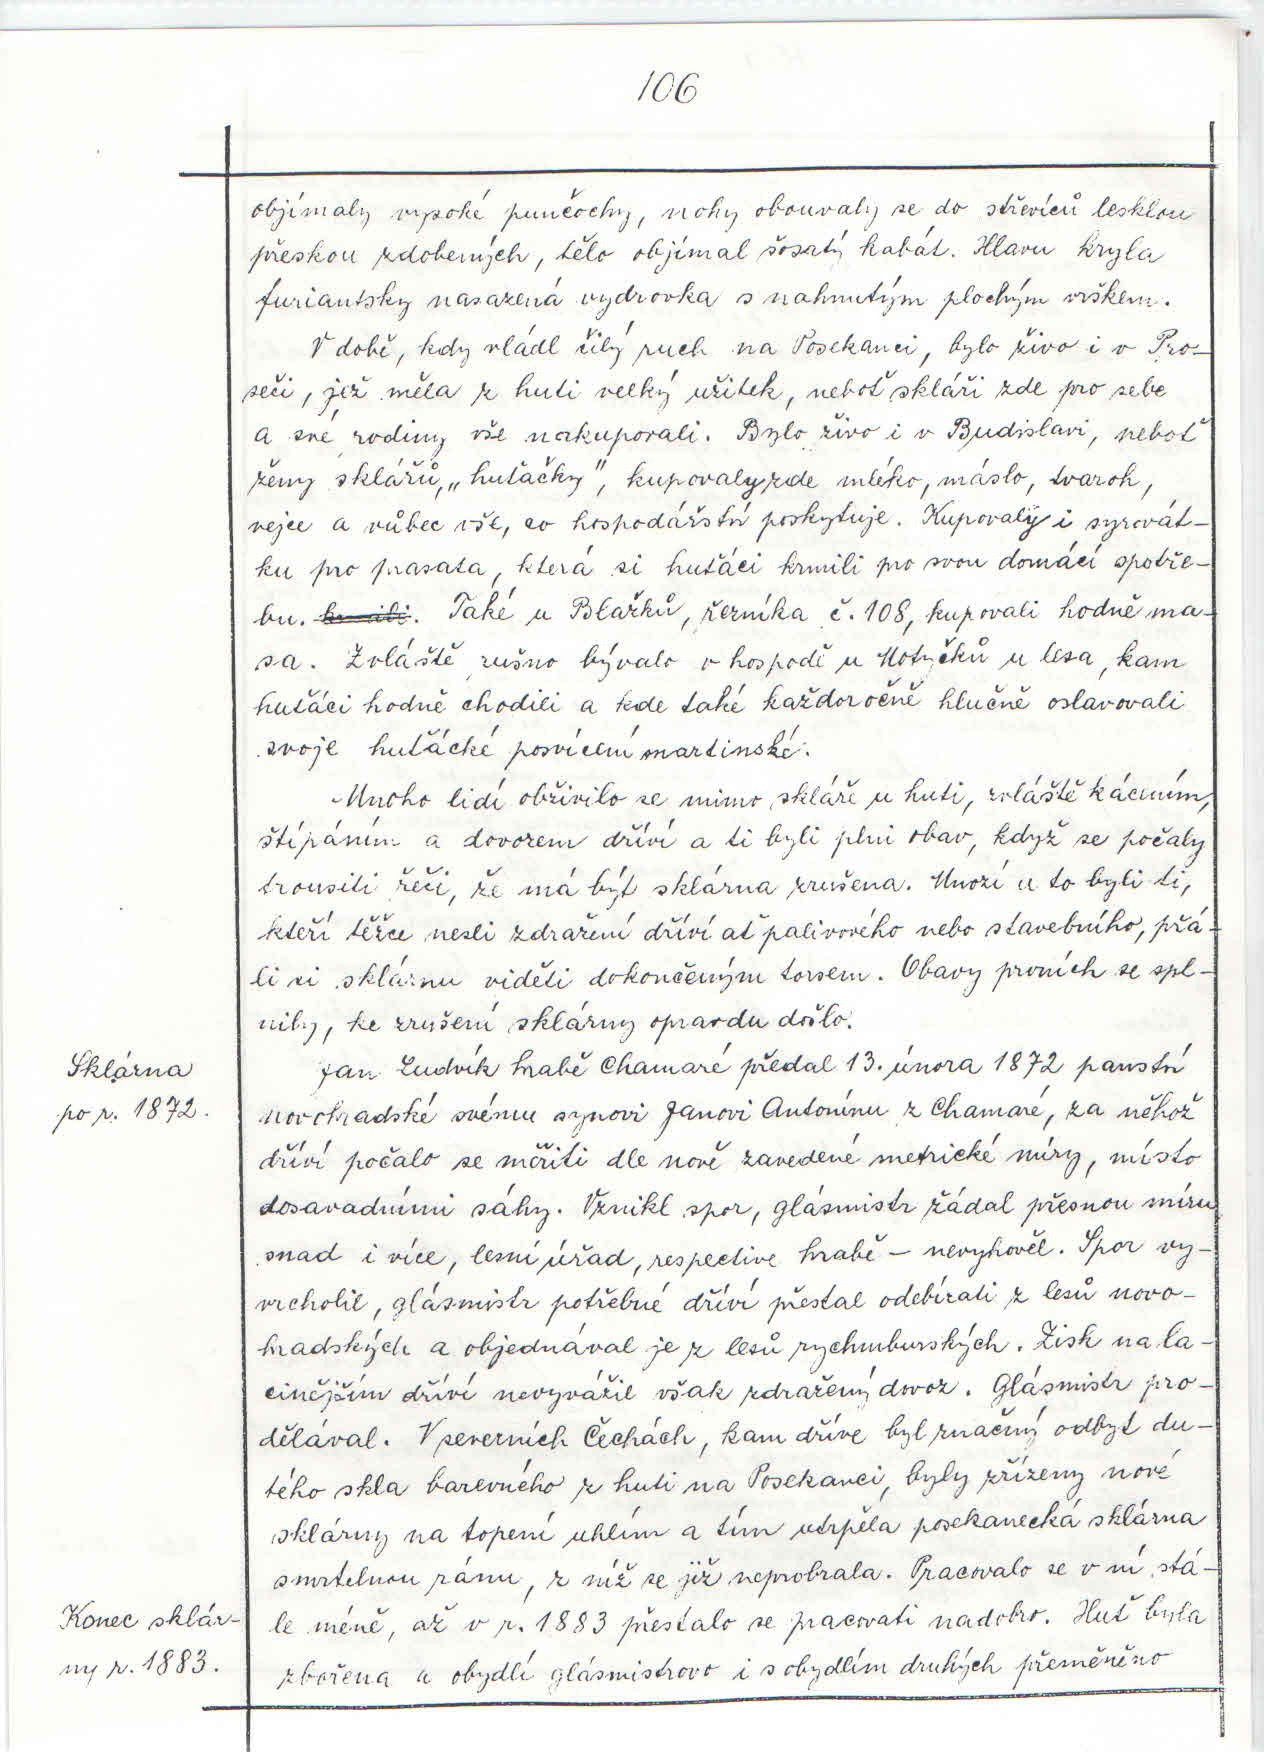 106
objímaly vysoké punčochy, nohy obouvaly se do střevíců lesklou
přeskou zdobených, tělo objímal šosatý kabát. Hlavu kryla
furiantsky nasazená vydrovka s nahnutým plochým vrškem.
V době, kdy vládl čilý ruch na Posekanci, bylo živo i v Pro-
seči, jež měla z huti velký užitek, neboť skláři zde pro sebe
a své rodiny vše nakupovali. Bylo živo i v Budislavi, neboť
ženy sklářů, „huťačky", kupovaly zde mléko, máslo, tvaroh,
vejce a vůbec vše, co hospodářství poskytuje. Kupovaly i syrovát-
ku pro prasata, která si huťáci krmili pro svou domácí spotře-
bu. krmili. Také u Blažků, řezníka č. 108, kupovali hodně ma-
sa. Zvláště rušno bývalo v hospodě u Motyčků u lesa, kam
huťáci hodně chodili a kde také každoročně hlučně oslavovali
svoje huťácké posvícení martinské.
Mnoho lidí obživilo se mimo skláře u huti, zvláště kácením,
štípáním a dovozem dříví a ti byli plni obav, když se počaly
trousiti řeči, že má být sklárna zrušena. Mnozí u to byli ti,
kteří těžce nesli zdražení dříví ať palivového nebo stavebního, přá-
li si sklárnu viděti dokončeným torsem. Obavy prvních se spl-
nily, ke zrušení sklárny opravdu došlo.
Sklárna
po r. 1872.
Jan Ludvík hrabě Chamaré předal 13. února 1872 panství
novohradské svému synovi Janovi Antonínu z Chamaré, za něhož
dříví počalo se měřiti dle nově zavedené metrické míry, místo
dosavadními sáhy. Vznikl spor, glásmistr žádal přesnou míru
snad i více, lesní úřad, respective hrabě – nevyhověl. Spor vy-
vrcholil, glásmistr potřebné dříví přestal odebírati z lesů novo-
hradských a objednával je z lesů rychmburských. Zisk na la-
cinějším dříví nevyvážil však zdražený dovoz. Glásmistr pro-
dělával. V severních Čechách, kam dříve byl značný odbyt du-
tého skla barevného z huti na Posekanci, byly zřízeny nové
sklárny na topení uhlím a tím utrpěla posekanecká sklárna
smrtelnou ránu, z níž se již neprobrala. Pracovalo se v ní stá-
Konec sklár-
ny r. 1883.
le méně, až v r. 1883 přestalo se pracovati nadobro. Huť byla
zbořena a obydlí glásmistrovo i s obydlím druhých přeměněno